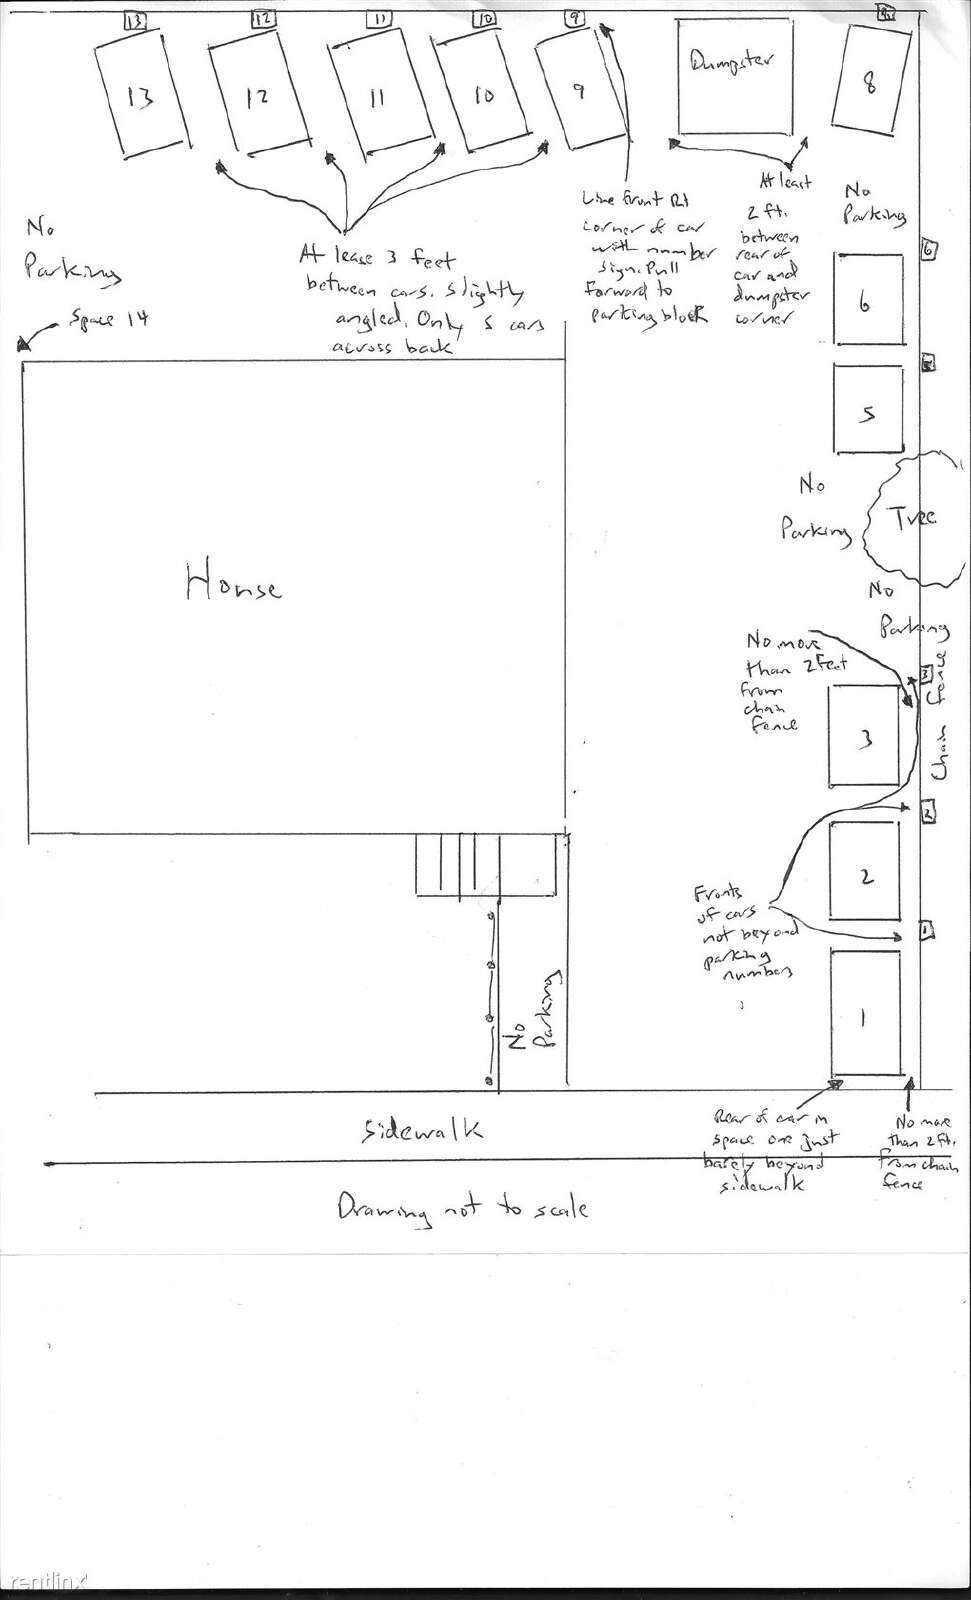 13
12
11
10
9
13
12
11
10
9
Dumpster
8
No
Parking
Space 14
At lease 3 feet
between cars. Slightly
angled. Only 5 cars
across back
Line front Rt
corner of car
with number
sign. Pull
forward to
parking block
At least
2 ft.
between
rear of
car and
dumpster
corner
No
Parking
6
6
5
5
No
Parking
Tree
No
Parking
House
No more
than 2 feet
from
chain
fence
3
3
Chain fence
2
2
Fronts
of cars
not beyond
parking
numbers
1
1
No
Parking
Sidewalk
Rear of car in
space one just
barely beyond
sidewalk
No more
than 2 ft.
from chain
fence
Drawing not to scale
rentlinx